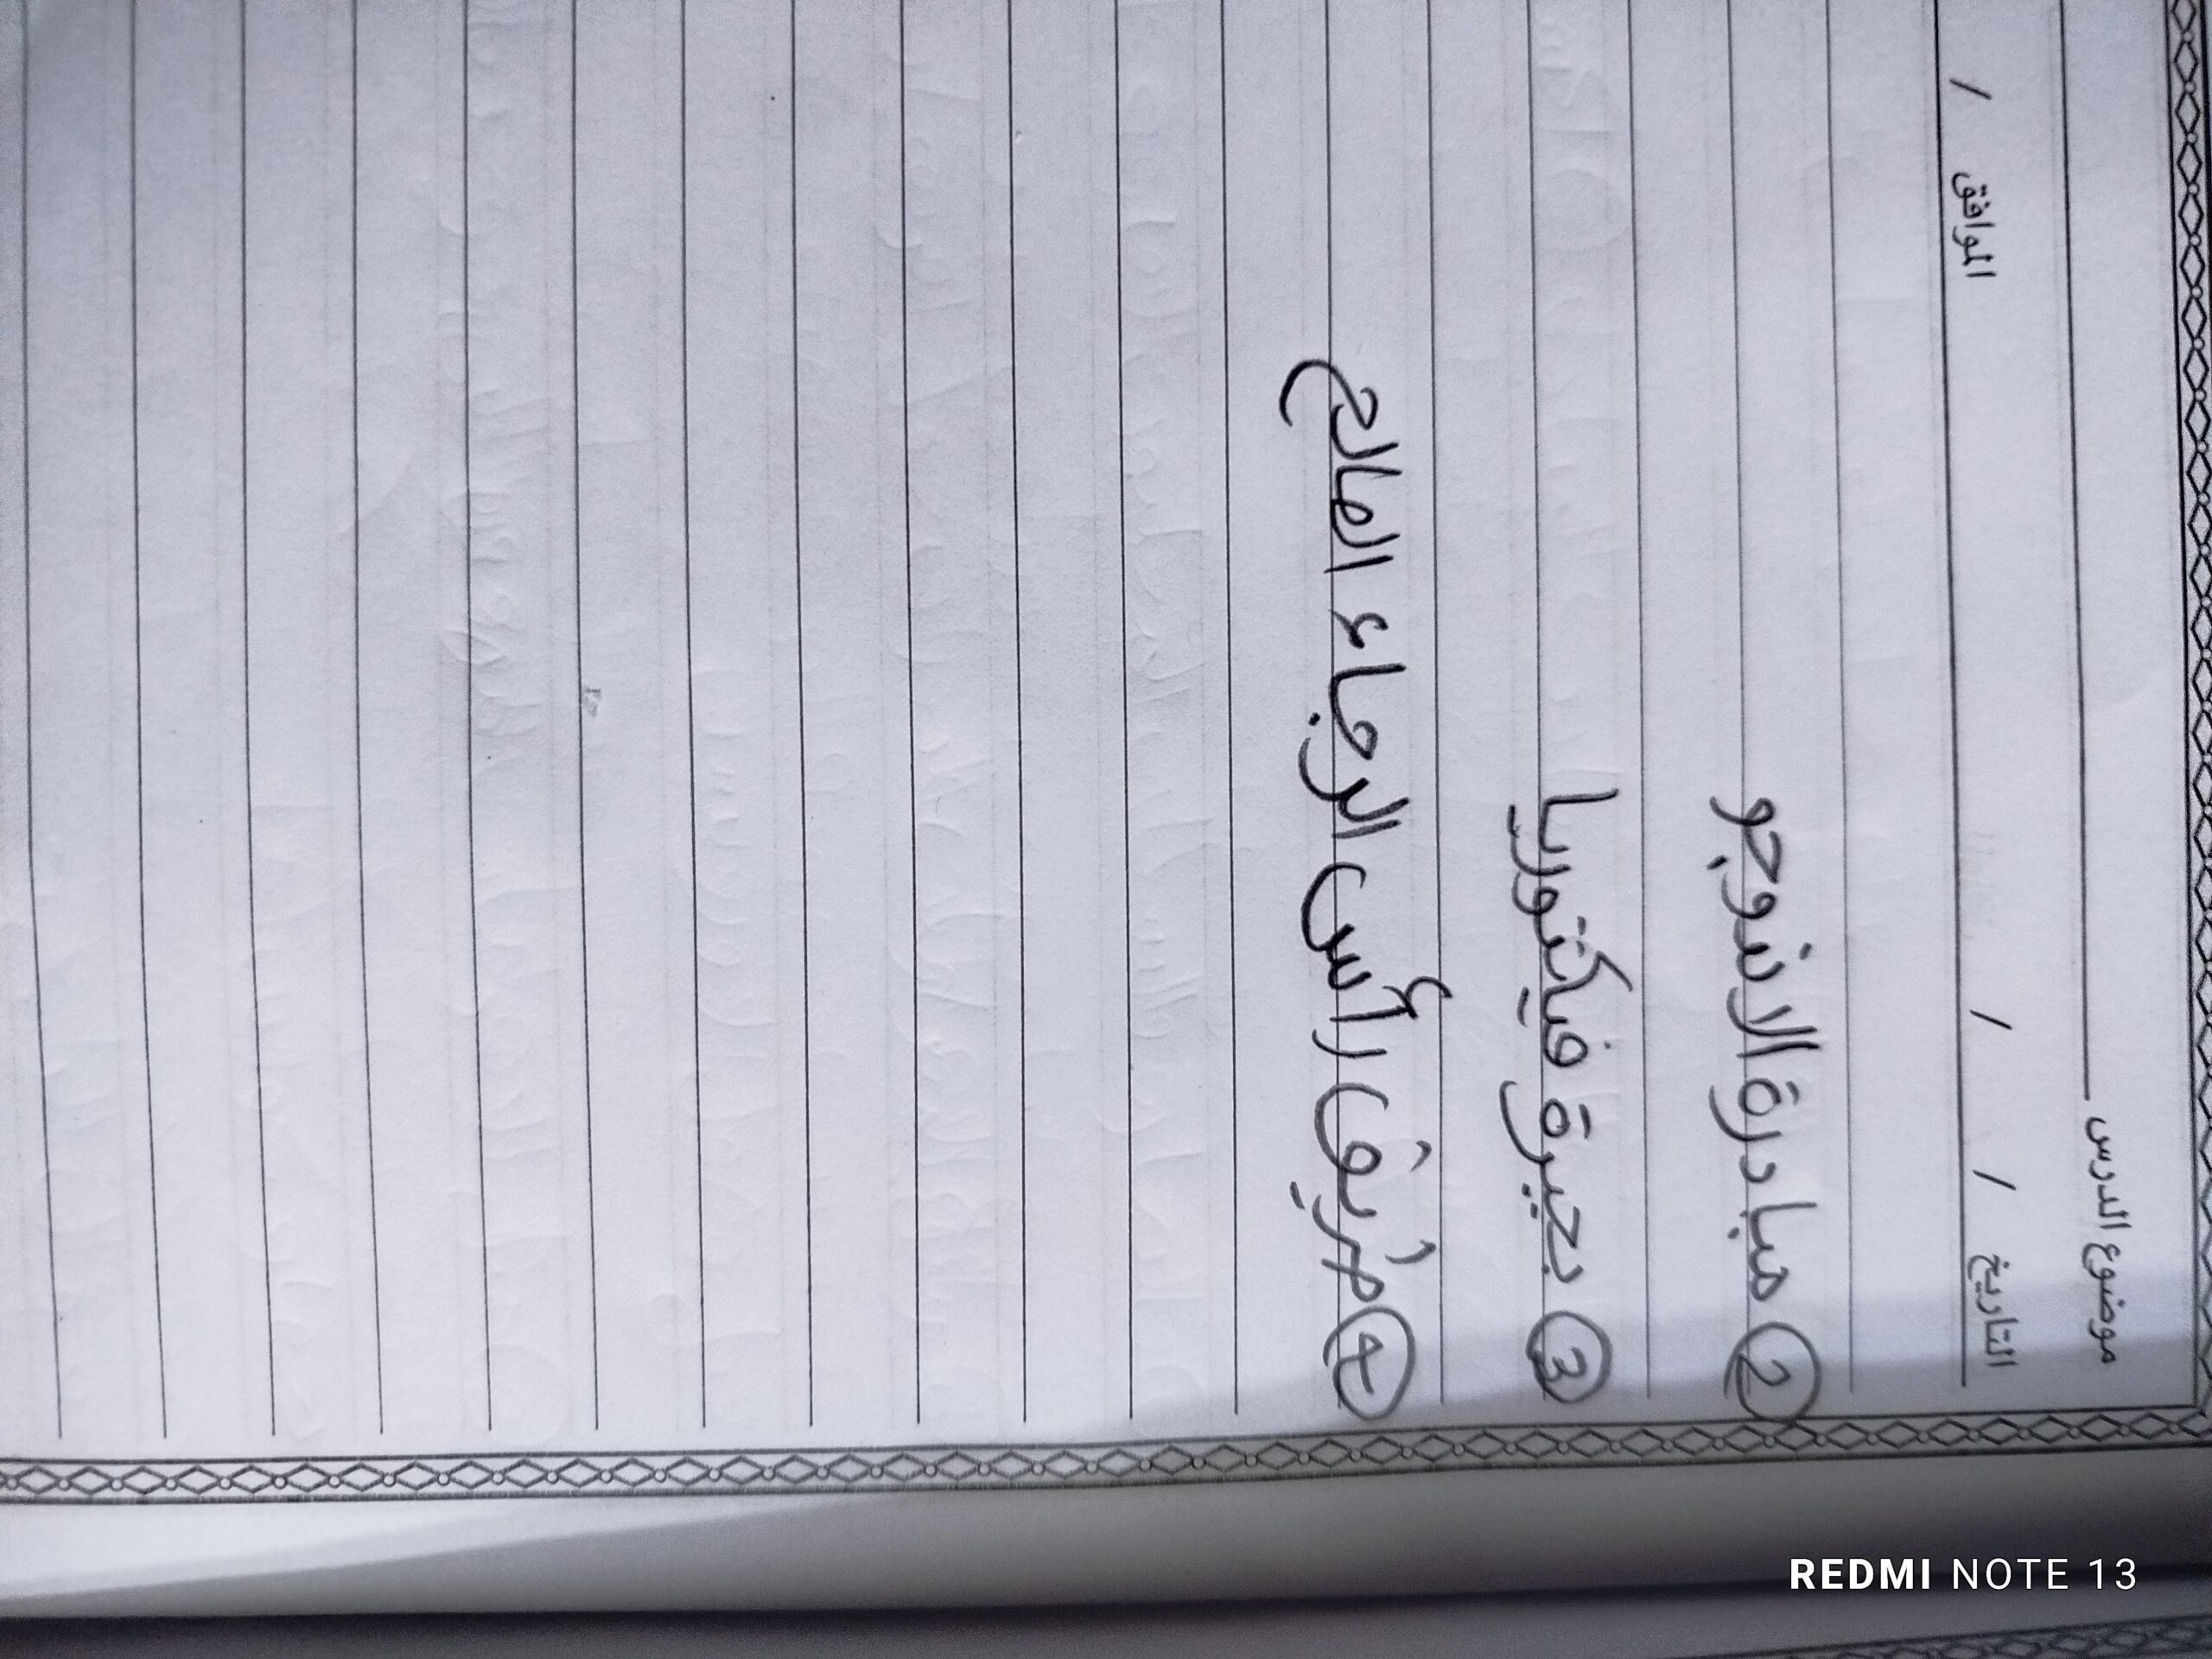 موضوع الدرس
التاريخ / / الموافق /
② مبادرة الاندوجو
③ بحيرة فيكتوريا
④ طريق رأس الرجاء الصالح
REDMI NOTE 13